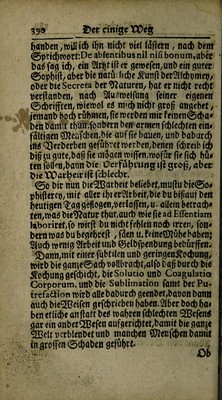 390 Der einige Weg
handen / will ich ihn nicht viel lästern / nach dem
Sprichwort: De absentibus nil nisi bonum, aber
das sag ich / ein Arzt ist er gewesen / und ein guter
Sophist / aber die natürliche Kunst der Alchymey /
oder die Secreta der Naturen / hat er nicht recht
verstanden / nach Ausweisung seiner eigenen
Schrifften / wiewol es mich nicht groß angehet
jemand doch rühmen / sie werden mir keinen Scha-
den damit thun / sondern den armen schlechten ein-
fältigen Menschen / die auf sie bauen / und dadurch
ins Verderben geführet werden / denen schreib ich
diß zu gute / daß sie mögen wissen / wofür sie sich hü-
ten sollen / dann die Verführung ist groß / aber
die Warheit ist schlecht.
So dir nun die Warheit beliebet / mustu die So-
phisterey / mit aller ihrer Arbeit / die da biß auf den
heutigen Tag geflogen / verlassen / u. allein betrach-
ten / was die Natur thut / auch wie sie ad Essentiam
laboriret, so wirst du nicht fehlen noch irren / son-
dern was du begehrest / säen u. keine Mühe haben;
Auch wenig Arbeit und Geldspendung bedürffen.
Dann / mit einer subtilen und geringen Kochung /
wird die ganze Sach vollbracht / also daß durch die
Kochung geschicht / die Solutio und Coagulatio
Corporum, und die Sublimation samt der Pu-
trefaction wird alle dadurch geendet / davon dann
auch die Weisen geschrieben haben. Aber doch ha-
ben etliche anstatt des wahren schlechten Wesens
gar ein ander Wesen aufgerichtet / damit die ganze
Welt verblendet und manchen Menschen damit
in grossen Schaden geführt.
Ob